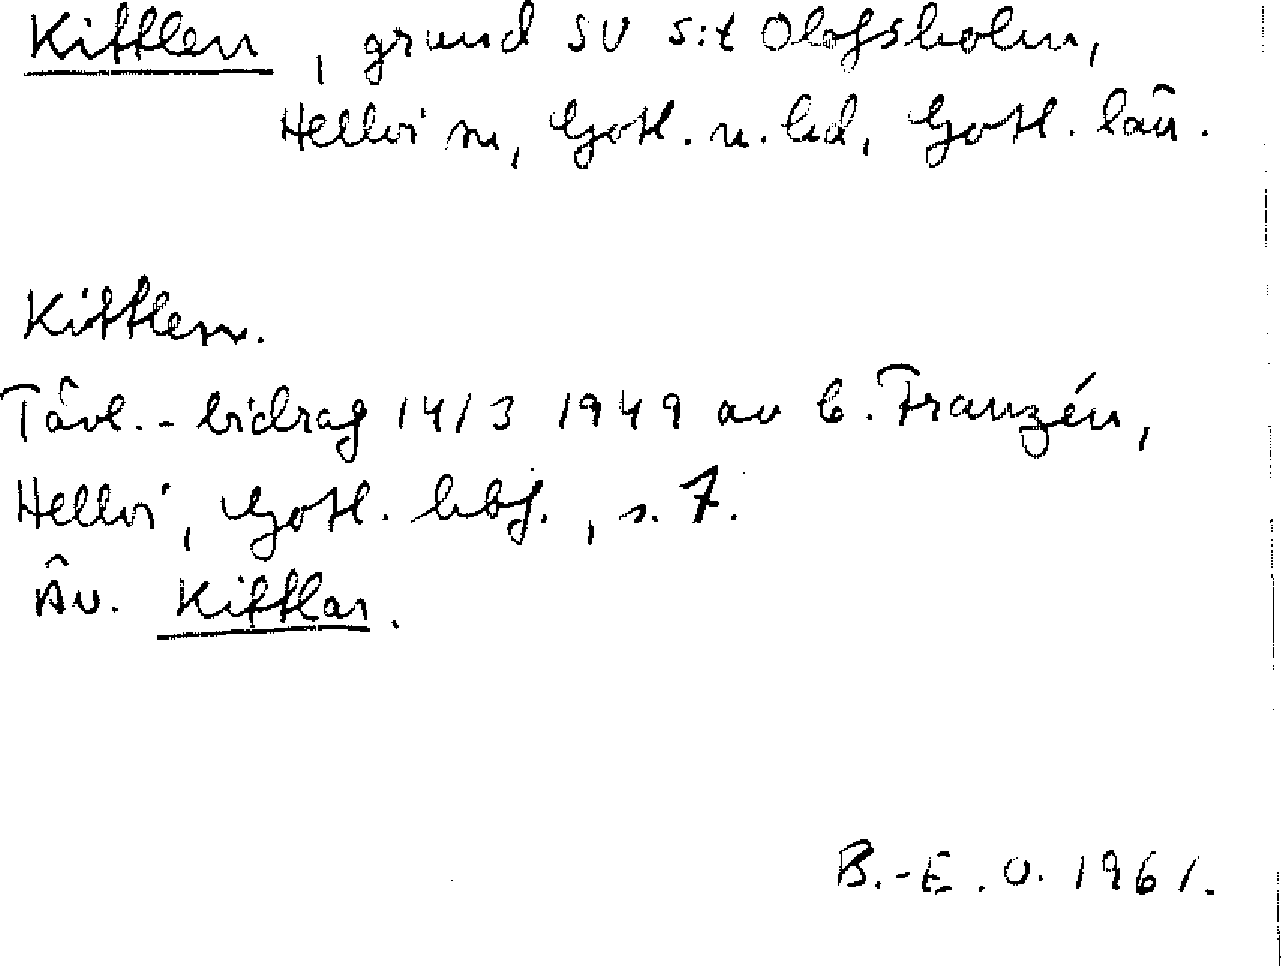 Kittlen, grund SV S:t Olofsholm,
Hellvi sn, Gotl. n. hd, Gotl. län.
Kittlen.
Tävl.-bidrag 14/3 1949 av B. Franzén,
Hellvi, Gotl. hbf., s. 7.
Äv. Kittlar.
B.-E. O. 1961.